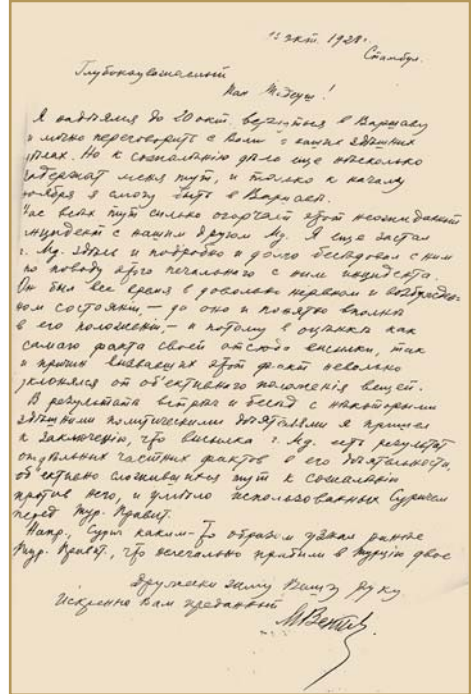 13 окт. 1928 г.
Стамбул.
Глубокоуважаемый
Пан Тадеуш!
Я надѣялся до 20 окт. вернуться в Варшаву
и лично переговорить с Вами о наших здѣшних
дѣлах. Но к сожалѣнію дѣла еще нѣсколько
задержат меня тут, и только к началу
ноября я смогу быть в Варшавѣ.
Нас всѣх тут сильно огорчает этот неожиданный
инцидент с нашим другом Мд. Я еще застал
г. Мд. здѣсь и подробно и долго бесѣдовал с ним
по поводу этого печальнаго с ним инцидента.
Он был все время в довольно нервном и возбужден-
ном состояніи, – да оно и понятно вполнѣ
в его положеніи, – и потому в оцѣнкѣ как
самаго факта своей отсюда высылки, так
и причин вызвавших этот факт невольно
уклонялся от об'ективнаго положенія вещей.
В результатѣ встрѣч и бесѣд с нѣкоторыми
здѣшними политическими дѣятелями я пришел
к заключенію, что высылка г. Мд. есть результат
отдѣльных частных фактов в его дѣятельности,
об'ективно сложившихся тут к сожалѣнію
против него, и умѣло использованных Сурицем
перед Тур. Правит.
Напр., Суриц каким-то образом узнал раньше
Тур. Правит., что нелегально прибыли в Турцію двое
Дружески жму Вашу руку
Искренно Вам преданный